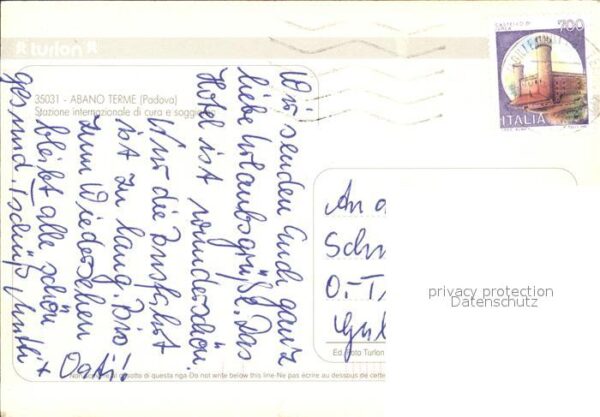 turlon
35031 - ABANO TERME (Padova)
Stazione internazionale di cura e soggio
CASTELLO DI
IVREA
700
ITALIA
Wir senden Euch ganz
liebe Urlaubsgrüße. Das
Hotel ist wunderschön.
Nur die Busfahrt
ist zu lang. Bis
zum Wiedersehen
bleibt alle schön
gesund. Tschüß Mutti +
Vati!
An
Schn
O.-T
Gut
privacy protection
Datenschutz
Ed. Foto Turlon
di sotto di questa riga-Do not write below this line-Ne pas écrire au dessous de cette